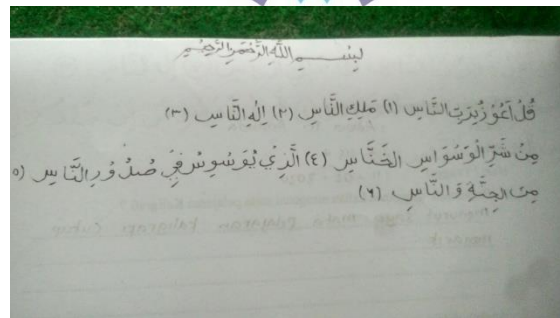 بِسْمِ اللَّهِ الرَّحْمَنِ الرَّحِيْمِ
قُلْ أَعُوْذُ بِرَبِّ النَّاسِ (١) مَلِكِ النَّاسِ (٢) إِلَهِ النَّاسِ (٣)
مِنْ شَرِّ الْوَسْوَاسِ الْخَنَّاسِ (٤) الَّذِيْ يُوَسْوِسُ فِيْ صُدُوْرِ النَّاسِ (٥
مِنَ الْجِنَّةِ وَ النَّاسِ (٦)